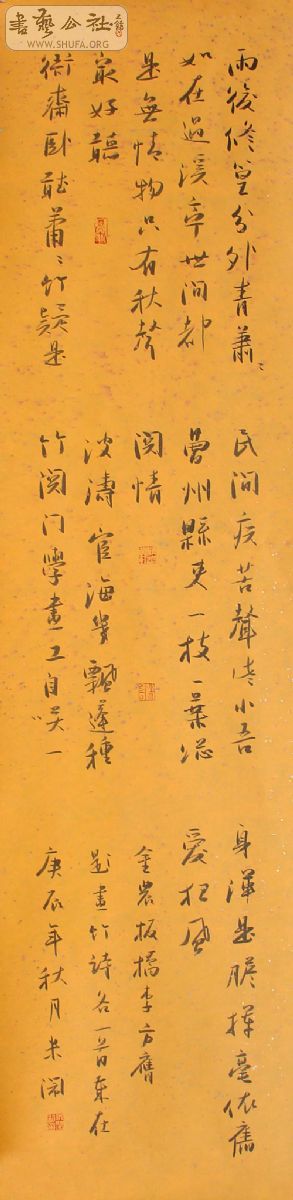 書藝公社
WWW.SHUFA.ORG
雨後修篁分外青蕭〻
如在過溪亭世間都
是無情物只有秋聲
最好聽
衙齋卧聽蕭〻竹疑是
民間疾苦聲些小吾
曹州縣吏一枝一葉總
關情
波濤宦海幾飄蓬種
竹關門學畫工自笑一
身渾是膽揮毫依舊
愛狂風
金農板橋李方膺
題畫竹詩各一首
庚辰年秋月